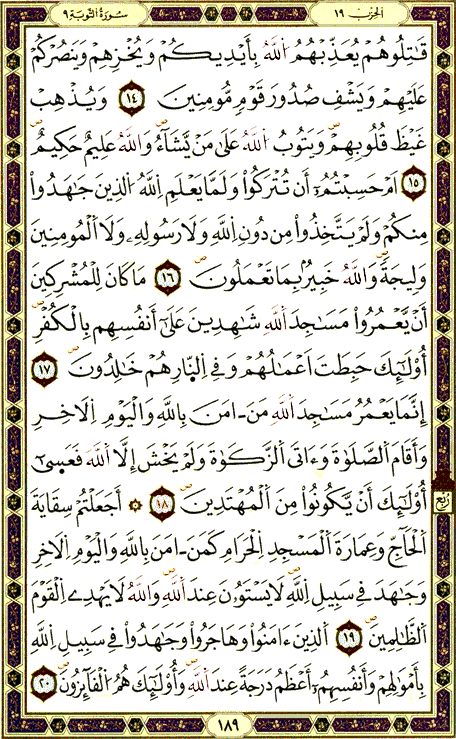 الحزب ١٩
سُورَةُ التَّوْبَةِ ٩
قَٰتِلُوهُمْ يُعَذِّبْهُمُ اللَّهُ بِأَيْدِيكُمْ وَيُخْزِهِمْ وَيَنصُرْكُمْ
عَلَيْهِمْ وَيَشْفِ صُدُورَ قَوْمٍ مُّومِنِينَ ١٤ وَيُذْهِبْ
غَيْظَ قُلُوبِهِمْ وَيَتُوبُ اللَّهُ عَلَىٰ مَنْ يَّشَآءُ وَاللَّهُ عَلِيمٌ حَكِيمٌ
١٥ اَمْ حَسِبْتُمُۥٓ أَن تُتْرَكُوا۟ وَلَمَّا يَعْلَمِ اِللَّهُ الذِينَ جَٰهَدُوا۟
مِنكُمْ وَلَمْ يَتَّخِذُوا۟ مِن دُونِ اِللَّهِ وَلَا رَسُولِهِۦ وَلَا اَلْمُومِنِينَ
وَلِيجَةً وَاللَّهُ خَبِيرٌ بِمَا تَعْمَلُونَ ١٦ مَا كَانَ لِلْمُشْرِكِينَ
أَنْ يَّعْمُرُوا۟ مَسَٰجِدَ اَللَّهِ شَٰهِدِينَ عَلَىٰٓ أَنفُسِهِم بِالْكُفْرِ
أُو۟لَٰٓئِكَ حَبِطَتَ اَعْمَٰلُهُمْ وَفِے اِلنّ۪ارِ هُمْ خَٰلِدُونَ ١٧
إِنَّمَا يَعْمُرُ مَسَٰجِدَ اَللَّهِ مَنَ ـ امَنَ بِاللَّهِ وَالْيَوْمِ اِلَاخِرِ
وَأَقَامَ الصَّلَوٰةَ وَءَاتَى اَلزَّكَوٰةَ وَلَمْ يَخْشَ إِلَّا اَللَّهَ فَعَسَىٰٓ
أُو۟لَٰٓئِكَ أَنْ يَّكُونُوا۟ مِنَ اَلْمُهْتَدِينَ ١٨ ۞ أَجَعَلْتُمْ سِقَايَةَ
اَلْحَآجِّ وَعِمَارَةَ اَلْمَسْجِدِ اِلْحَرَامِ كَمَنَ ـ امَنَ بِاللَّهِ وَالْيَوْمِ اِلَاخِرِ
وَجَٰهَدَ فِے سَبِيلِ اِللَّهِ لَا يَسْتَوُۥنَ عِندَ اَللَّهِ وَاللَّهُ لَا يَهْدِے اِلْقَوْمَ
اَلظَّٰلِمِينَ ١٩ اَلذِينَ ءَامَنُوا۟ وَهَاجَرُوا۟ وَجَٰهَدُوا۟ فِے سَبِيلِ اِللَّهِ
بِأَمْوَٰلِهِمْ وَأَنفُسِهِمُۥٓ أَعْظَمُ دَرَجَةً عِندَ اَللَّهِ وَأُو۟لَٰٓئِكَ هُمُ اُلْفَآئِزُونَ ٢٠
ربع
١٨٩